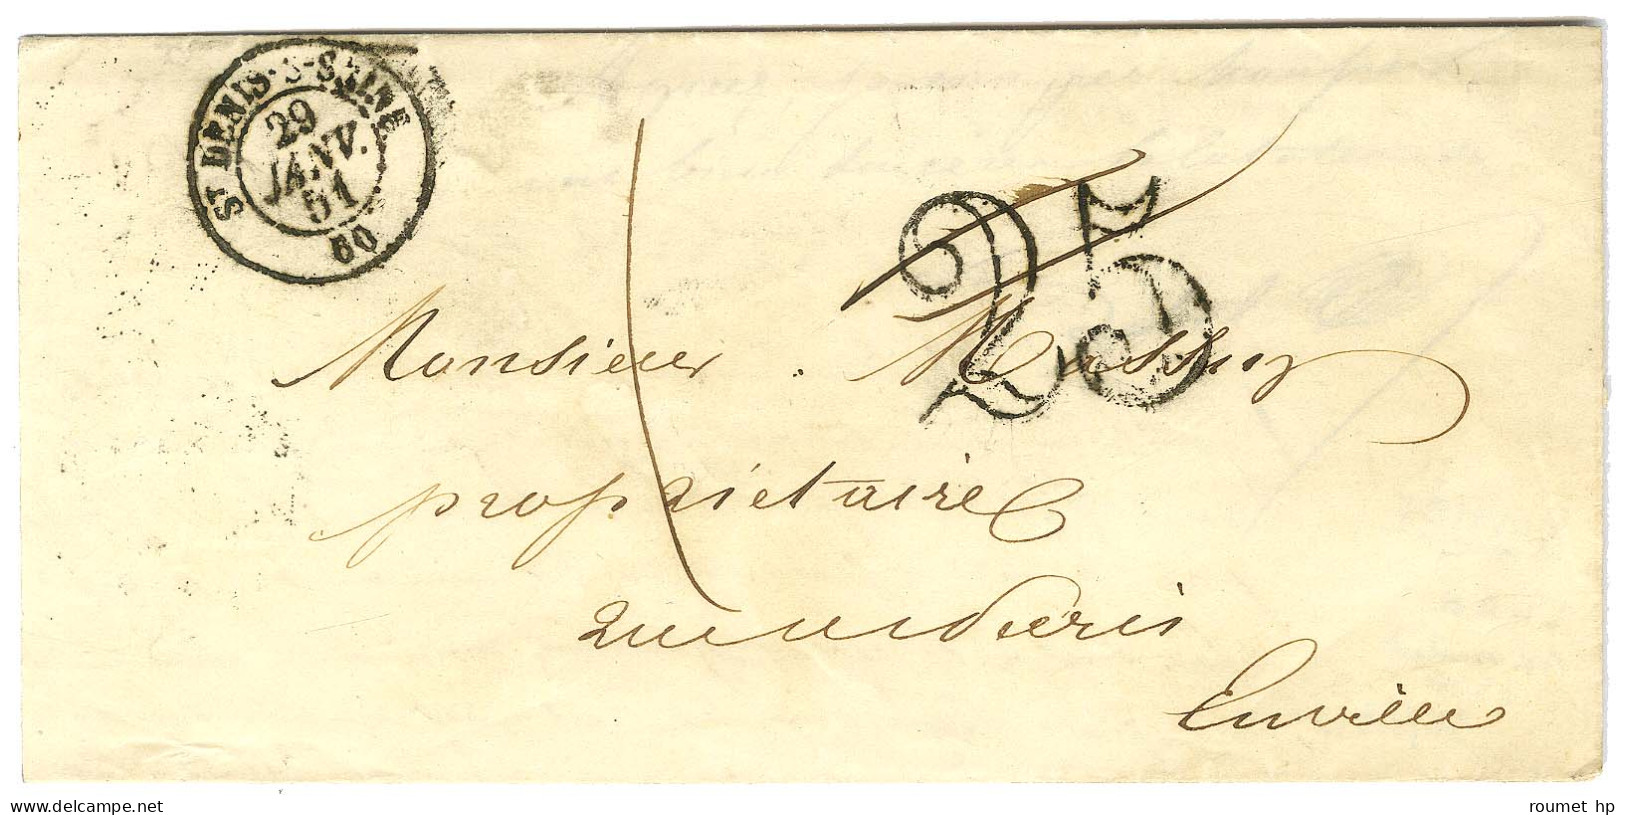 ST DENIS-S-SEINE
29
JANV.
51
60
25
Monsieur Massuy
propriétaire
Enville
www.delcampe.net
roumet hp